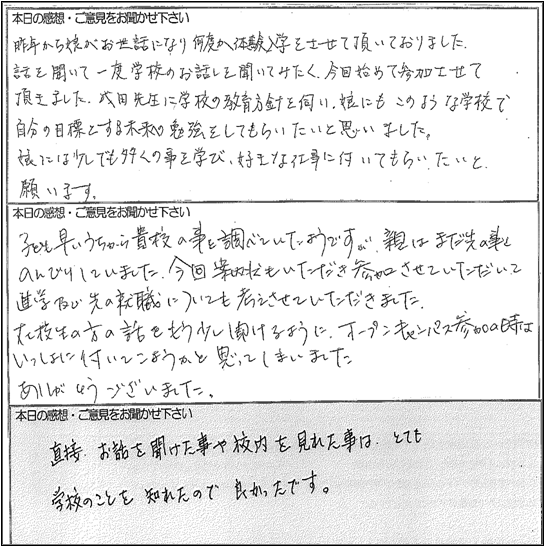 本日の感想・ご意見をお聞かせ下さい
昨年から娘がお世話になり何度か体験入学をさせて頂いておりました.
話を聞いて一度学校のお話しを聞いてみたく、今回始めて参加させて
頂きました. 成田先生に学校の教育方針を伺い、娘にもこのような学校で
自分の目標とする未来の勉強をしてもらいたいと思いました。
娘には少しでも多くの事を学び、好きな仕事に付いてもらいたいと
願います。
本日の感想・ご意見をお聞かせ下さい
子供も早いうちから貴校の事を調べていたようですが、親はまだ先の事と
のんびりしていました. 今回案内状もいただき参加させていただいて
進学及び先の就職についても考えさせていただきました.
在校生の方の話をもう少し聞けるように、オープンキャンパス参加の時は
いっしょに付いてこようかと思ってしまいました
ありがとうございました。
本日の感想・ご意見をお聞かせ下さい
直接、お話を聞けた事や校内を見れた事は、とても
学校のことを知れたので良かったです。